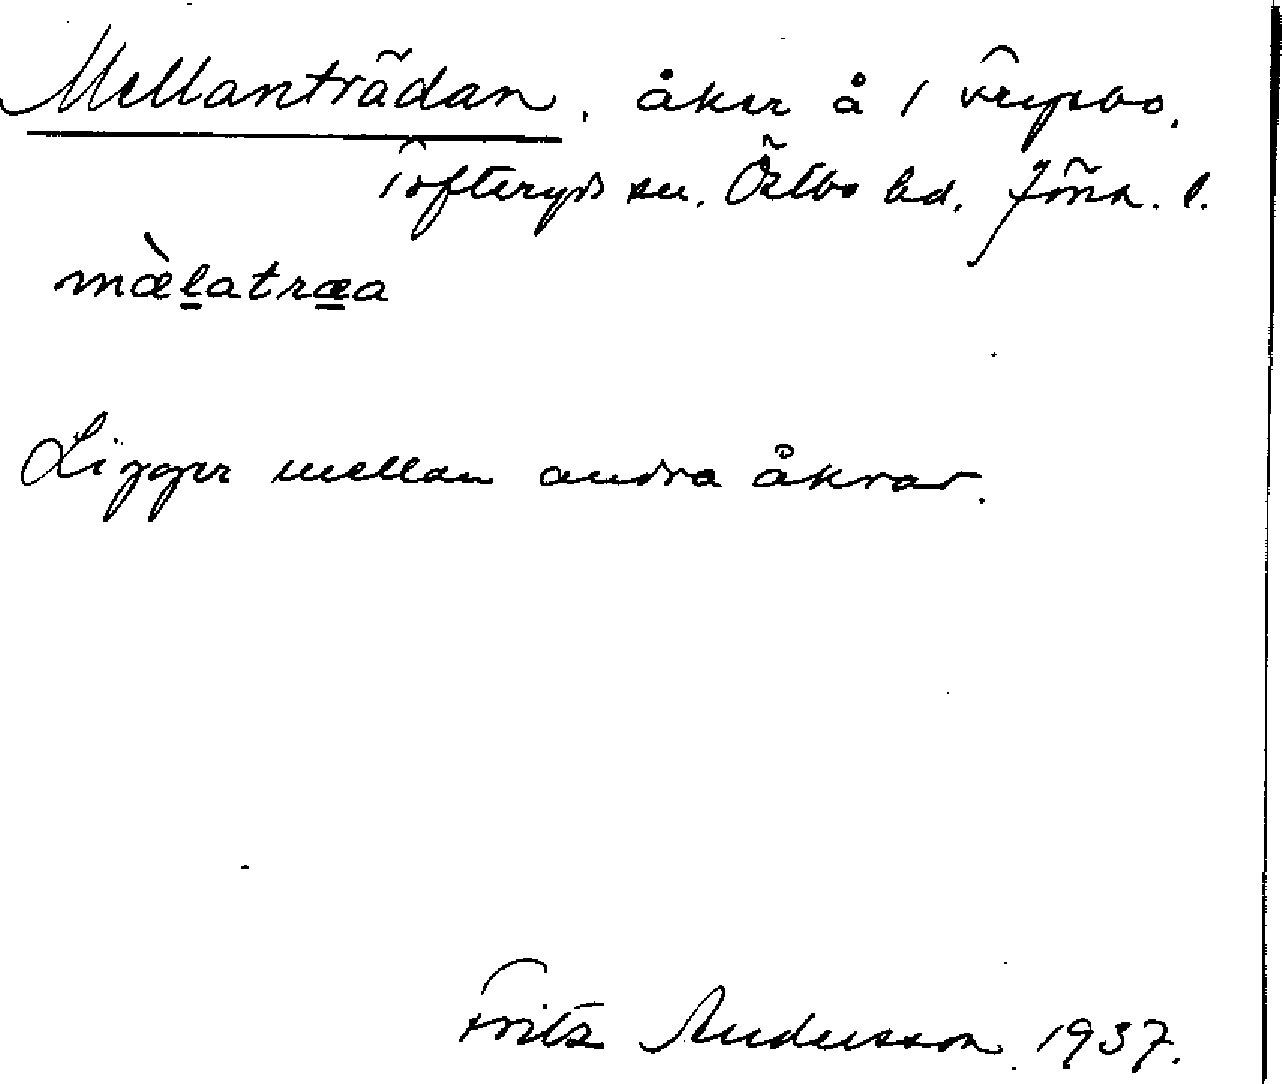 Mellanträdan, åker å 1 Trypebo,
Tofteryds sn. Östbo hd. Jönk. l.
mæ̀latræa
Ligger mellan andra åkrar.
Fritz Andersson 1937.